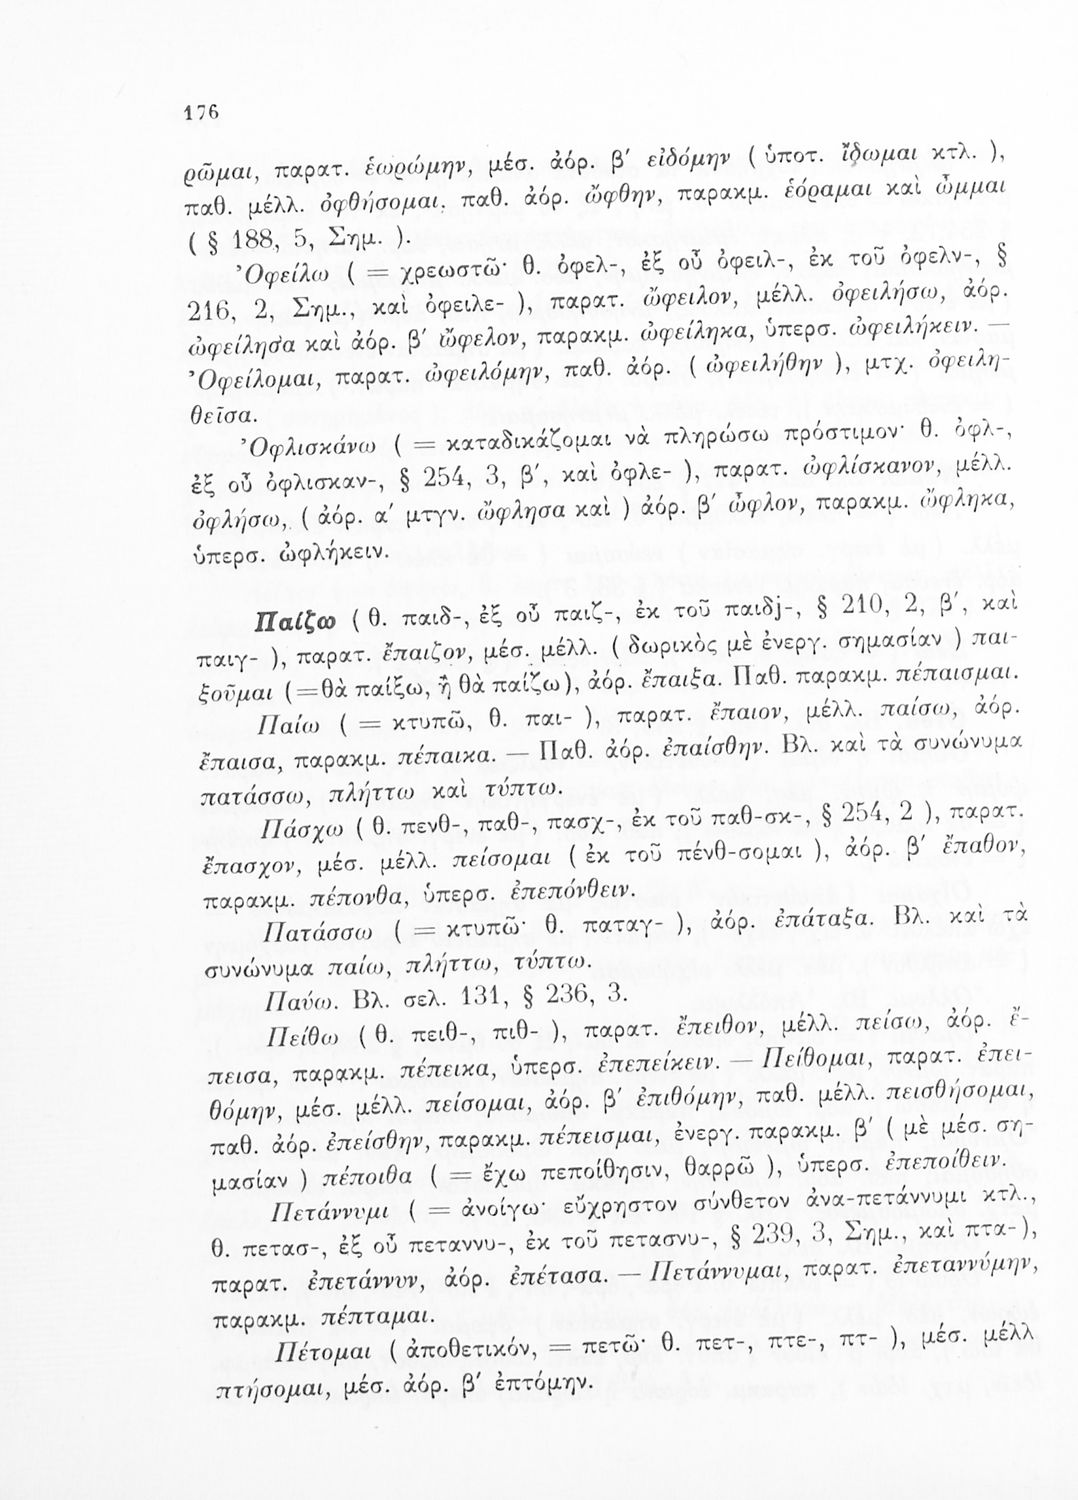 176
ρῶμαι, παρατ. ἑωρώμην, μέσ. ἀόρ. β′ εἰδόμην ( ὑποτ. ἴδωμαι κτλ. ),
παθ. μέλλ. ὀφθήσομαι, παθ. ἀόρ. ὤφθην, παρακμ. ἑόραμαι καὶ ὦμμαι
( § 188, 5, Σημ. ).
Ὀφείλω ( = χρεωστῶ· θ. ὀφελ-, ἐξ οὗ ὀφειλ-, ἐκ τοῦ ὀφελν-, §
216, 2, Σημ., καὶ ὀφειλε- ), παρατ. ὤφειλον, μέλλ. ὀφειλήσω, ἀόρ.
ὠφείλησα καὶ ἀόρ. β′ ὤφελον, παρακμ. ὠφείληκα, ὑπερσ. ὠφειλήκειν. —
Ὀφείλομαι, παρατ. ὠφειλόμην, παθ. ἀόρ. ( ὠφειλήθην ), μτχ. ὀφειλη-
θεῖσα.
Ὀφλισκάνω ( = καταδικάζομαι νὰ πληρώσω πρόστιμον· θ. ὀφλ-,
ἐξ οὗ ὀφλισκαν-, § 254, 3, β′, καὶ ὀφλε- ), παρατ. ὠφλίσκανον, μέλλ.
ὀφλήσω, ( ἀόρ. α′ μτγν. ὤφλησα καὶ ) ἀόρ. β′ ὦφλον, παρακμ. ὤφληκα,
ὑπερσ. ὠφλήκειν.
Παίζω ( θ. παιδ-, ἐξ οὗ παιζ-, ἐκ τοῦ παιδj-, § 210, 2, β′, καὶ
παιγ- ), παρατ. ἔπαιζον, μέσ. μέλλ. ( δωρικὸς μὲ ἐνεργ. σημασίαν ) παι-
ξοῦμαι (=θὰ παίξω, ἢ θὰ παίζω), ἀόρ. ἔπαιξα. Παθ. παρακμ. πέπαισμαι.
Παίω ( = κτυπῶ, θ. παι- ), παρατ. ἔπαιον, μέλλ. παίσω, ἀόρ.
ἔπαισα, παρακμ. πέπαικα. — Παθ. ἀόρ. ἐπαίσθην. Βλ. καὶ τὰ συνώνυμα
πατάσσω, πλήττω καὶ τύπτω.
Πάσχω ( θ. πενθ-, παθ-, πασχ-, ἐκ τοῦ παθ-σκ-, § 254, 2 ), παρατ.
ἔπασχον, μέσ. μέλλ. πείσομαι ( ἐκ τοῦ πένθ-σομαι ), ἀόρ. β′ ἔπαθον,
παρακμ. πέπονθα, ὑπερσ. ἐπεπόνθειν.
Πατάσσω ( = κτυπῶ· θ. παταγ- ), ἀόρ. ἐπάταξα. Βλ. καὶ τὰ
συνώνυμα παίω, πλήττω, τύπτω.
Παύω. Βλ. σελ. 131, § 236, 3.
Πείθω ( θ. πειθ-, πιθ- ), παρατ. ἔπειθον, μέλλ. πείσω, ἀόρ. ἔ-
πεισα, παρακμ. πέπεικα, ὑπερσ. ἐπεπείκειν. — Πείθομαι, παρατ. ἐπει-
θόμην, μέσ. μέλλ. πείσομαι, ἀόρ. β′ ἐπιθόμην, παθ. μέλλ. πεισθήσομαι,
παθ. ἀόρ. ἐπείσθην, παρακμ. πέπεισμαι, ἐνεργ. παρακμ. β′ ( μὲ μέσ. ση-
μασίαν ) πέποιθα ( = ἔχω πεποίθησιν, θαρρῶ ), ὑπερσ. ἐπεποίθειν.
Πετάννυμι ( = ἀνοίγω· εὔχρηστον σύνθετον ἀνα-πετάννυμι κτλ.,
θ. πετασ-, ἐξ οὗ πεταννυ-, ἐκ τοῦ πετασνυ-, § 239, 3, Σημ., καὶ πτα-),
παρατ. ἐπετάννυν, ἀόρ. ἐπέτασα. — Πετάννυμαι, παρατ. ἐπεταννύμην,
παρακμ. πέπταμαι.
Πέτομαι ( ἀποθετικόν, = πετῶ· θ. πετ-, πτε-, πτ- ), μέσ. μέλλ
πτήσομαι, μέσ. ἀόρ. β′ ἐπτόμην.